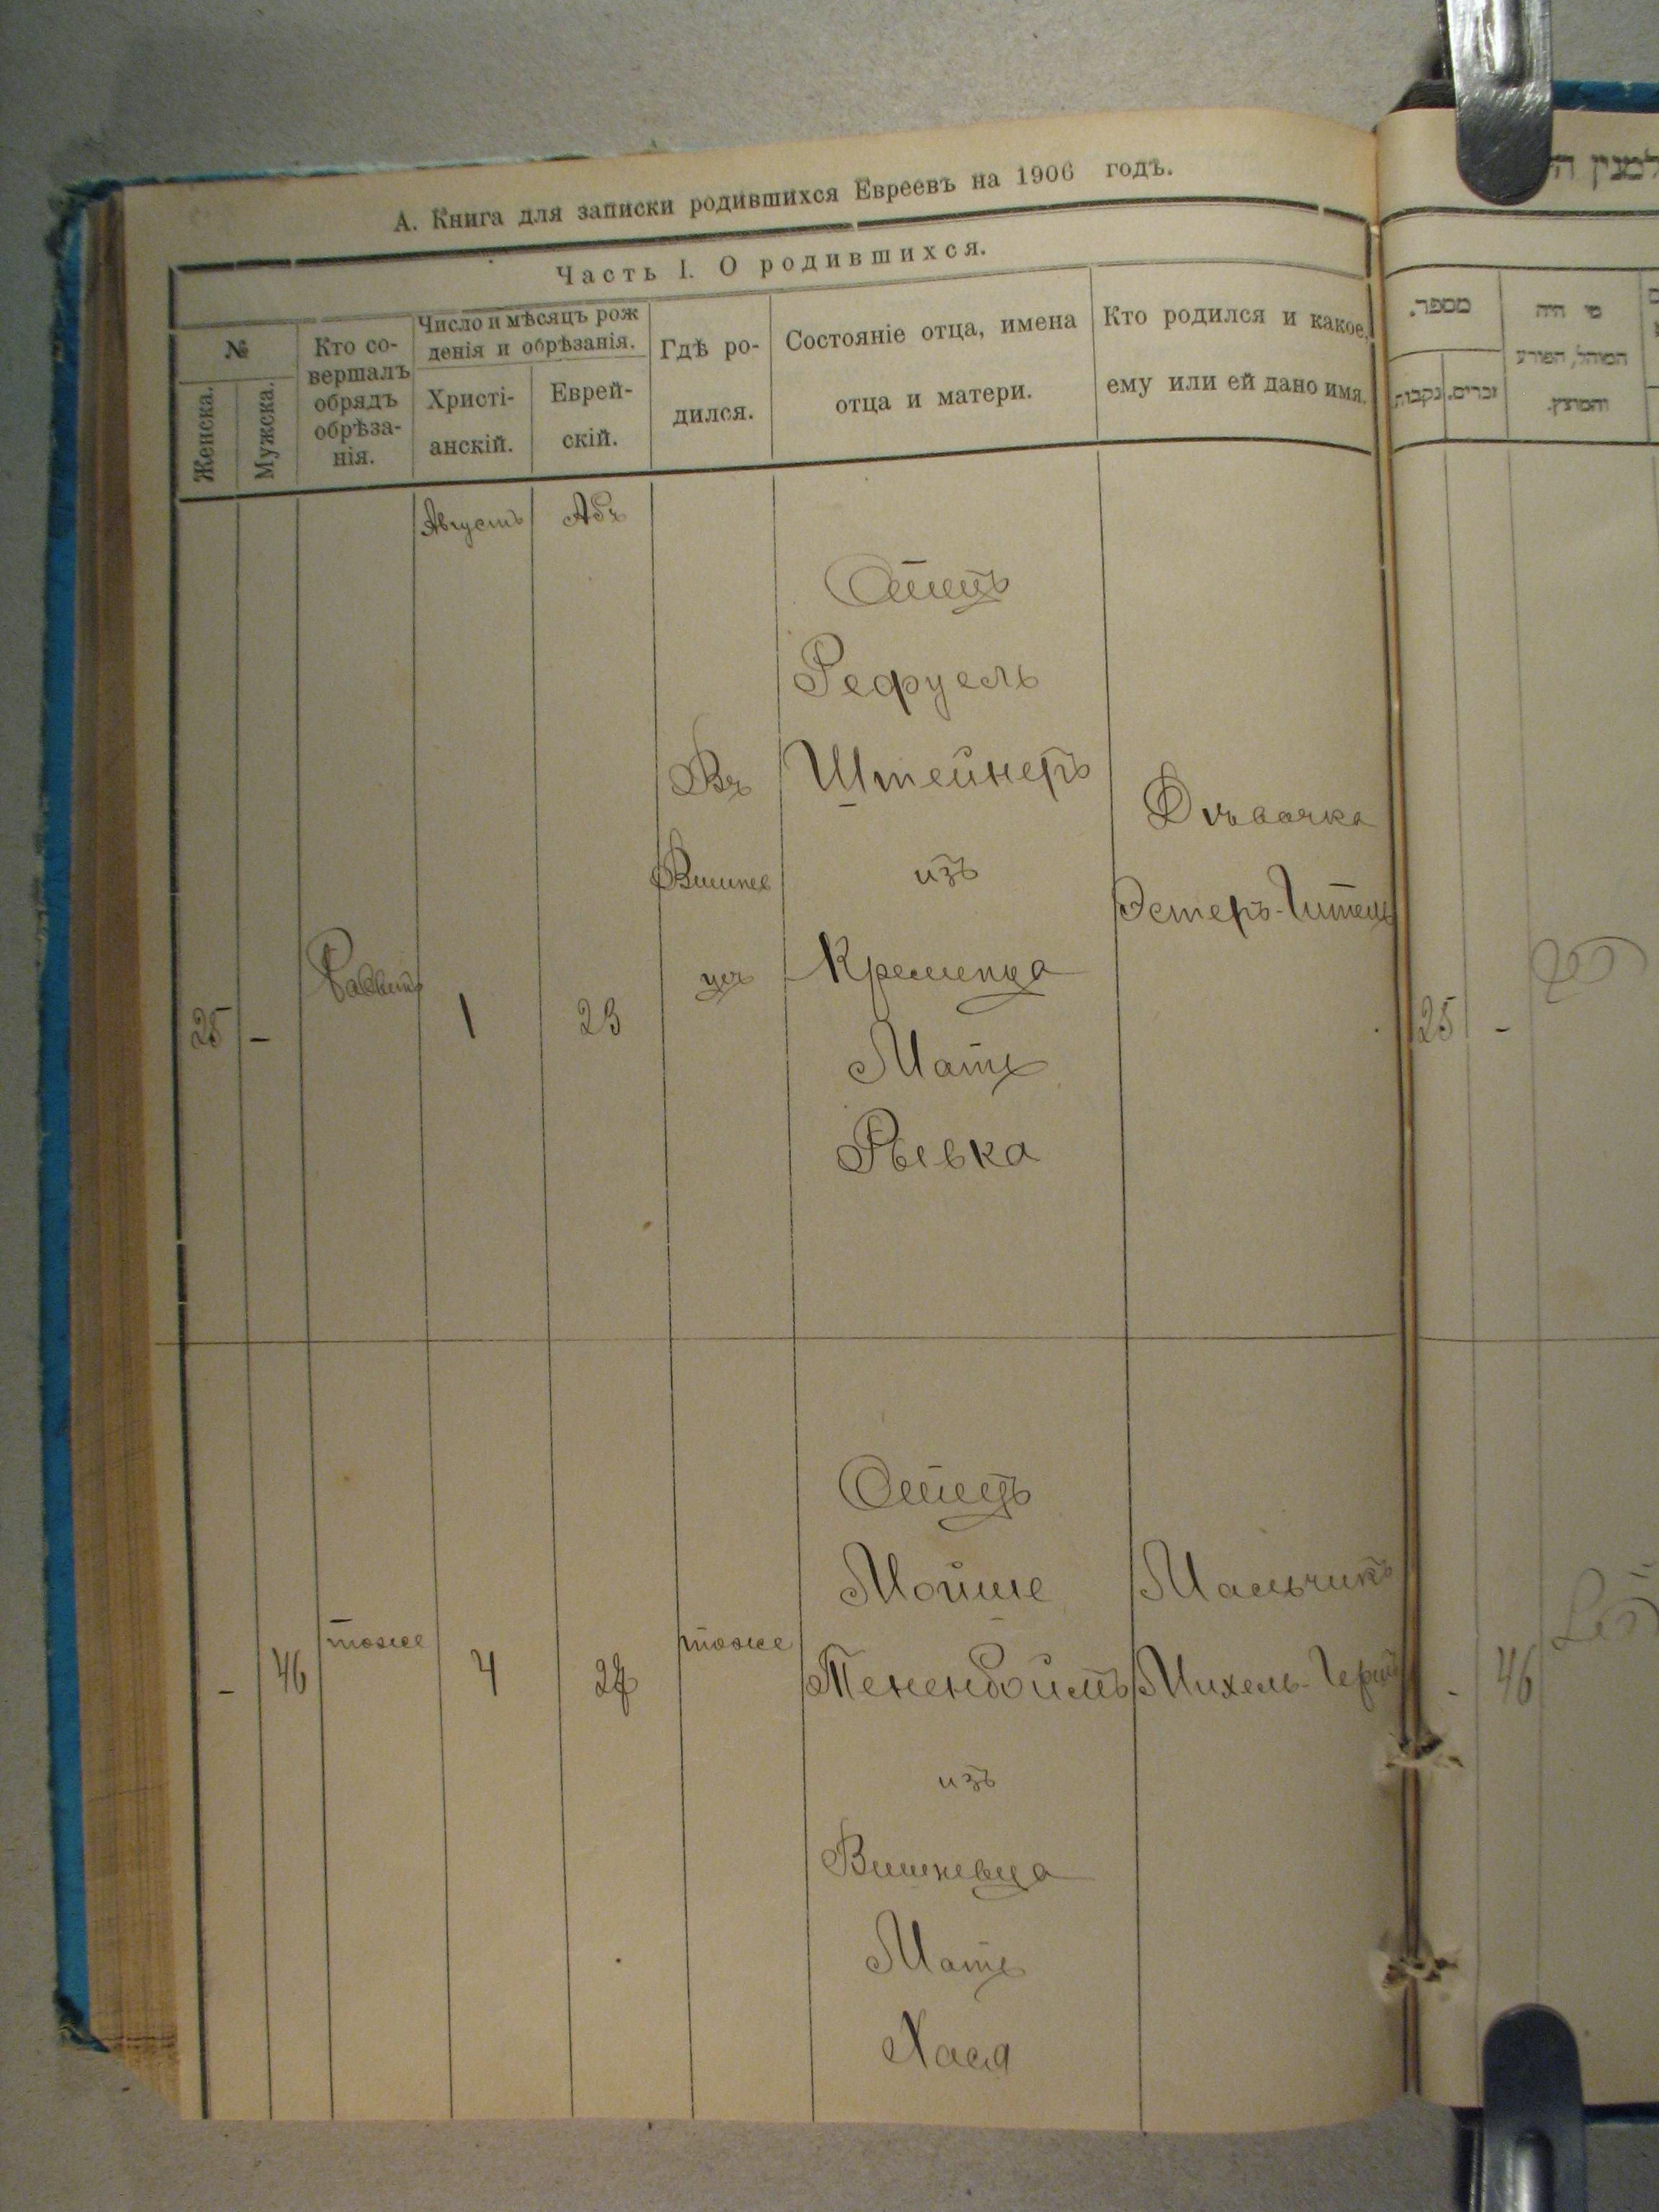 А. Книга для записки родившихся Евреевъ на 1906 годъ.
Часть I. О родившихся.
№
Женска.
Мужска.
Кто со-
вершалъ
обрядъ
обрѣза-
нія.
Число и мѣсяцъ рож
денія и обрѣзанія.
Христі-
анскій.
Еврей-
скій.
Гдѣ ро-
дился.
Состояніе отца, имена
отца и матери.
Кто родился и какое
ему или ей дано имя.
מספר.
נקבות
זכרים.
מי היה
המוהל, הפורע
והמוצץ.
Августъ
Абъ
25
-
Раввинъ
1
23
Въ
Вишнев
цѣ
Отецъ
Рефуель
Штейнеръ
изъ
Кременца
Мать
Рывка
Дѣвочка
Эстеръ-
25
-
-
46
тоже
4
тоже
Отецъ
Мойше
Тененбоймъ
изъ
Вишневца
Мать
Хася
Мальчикъ
Михель-
-
46